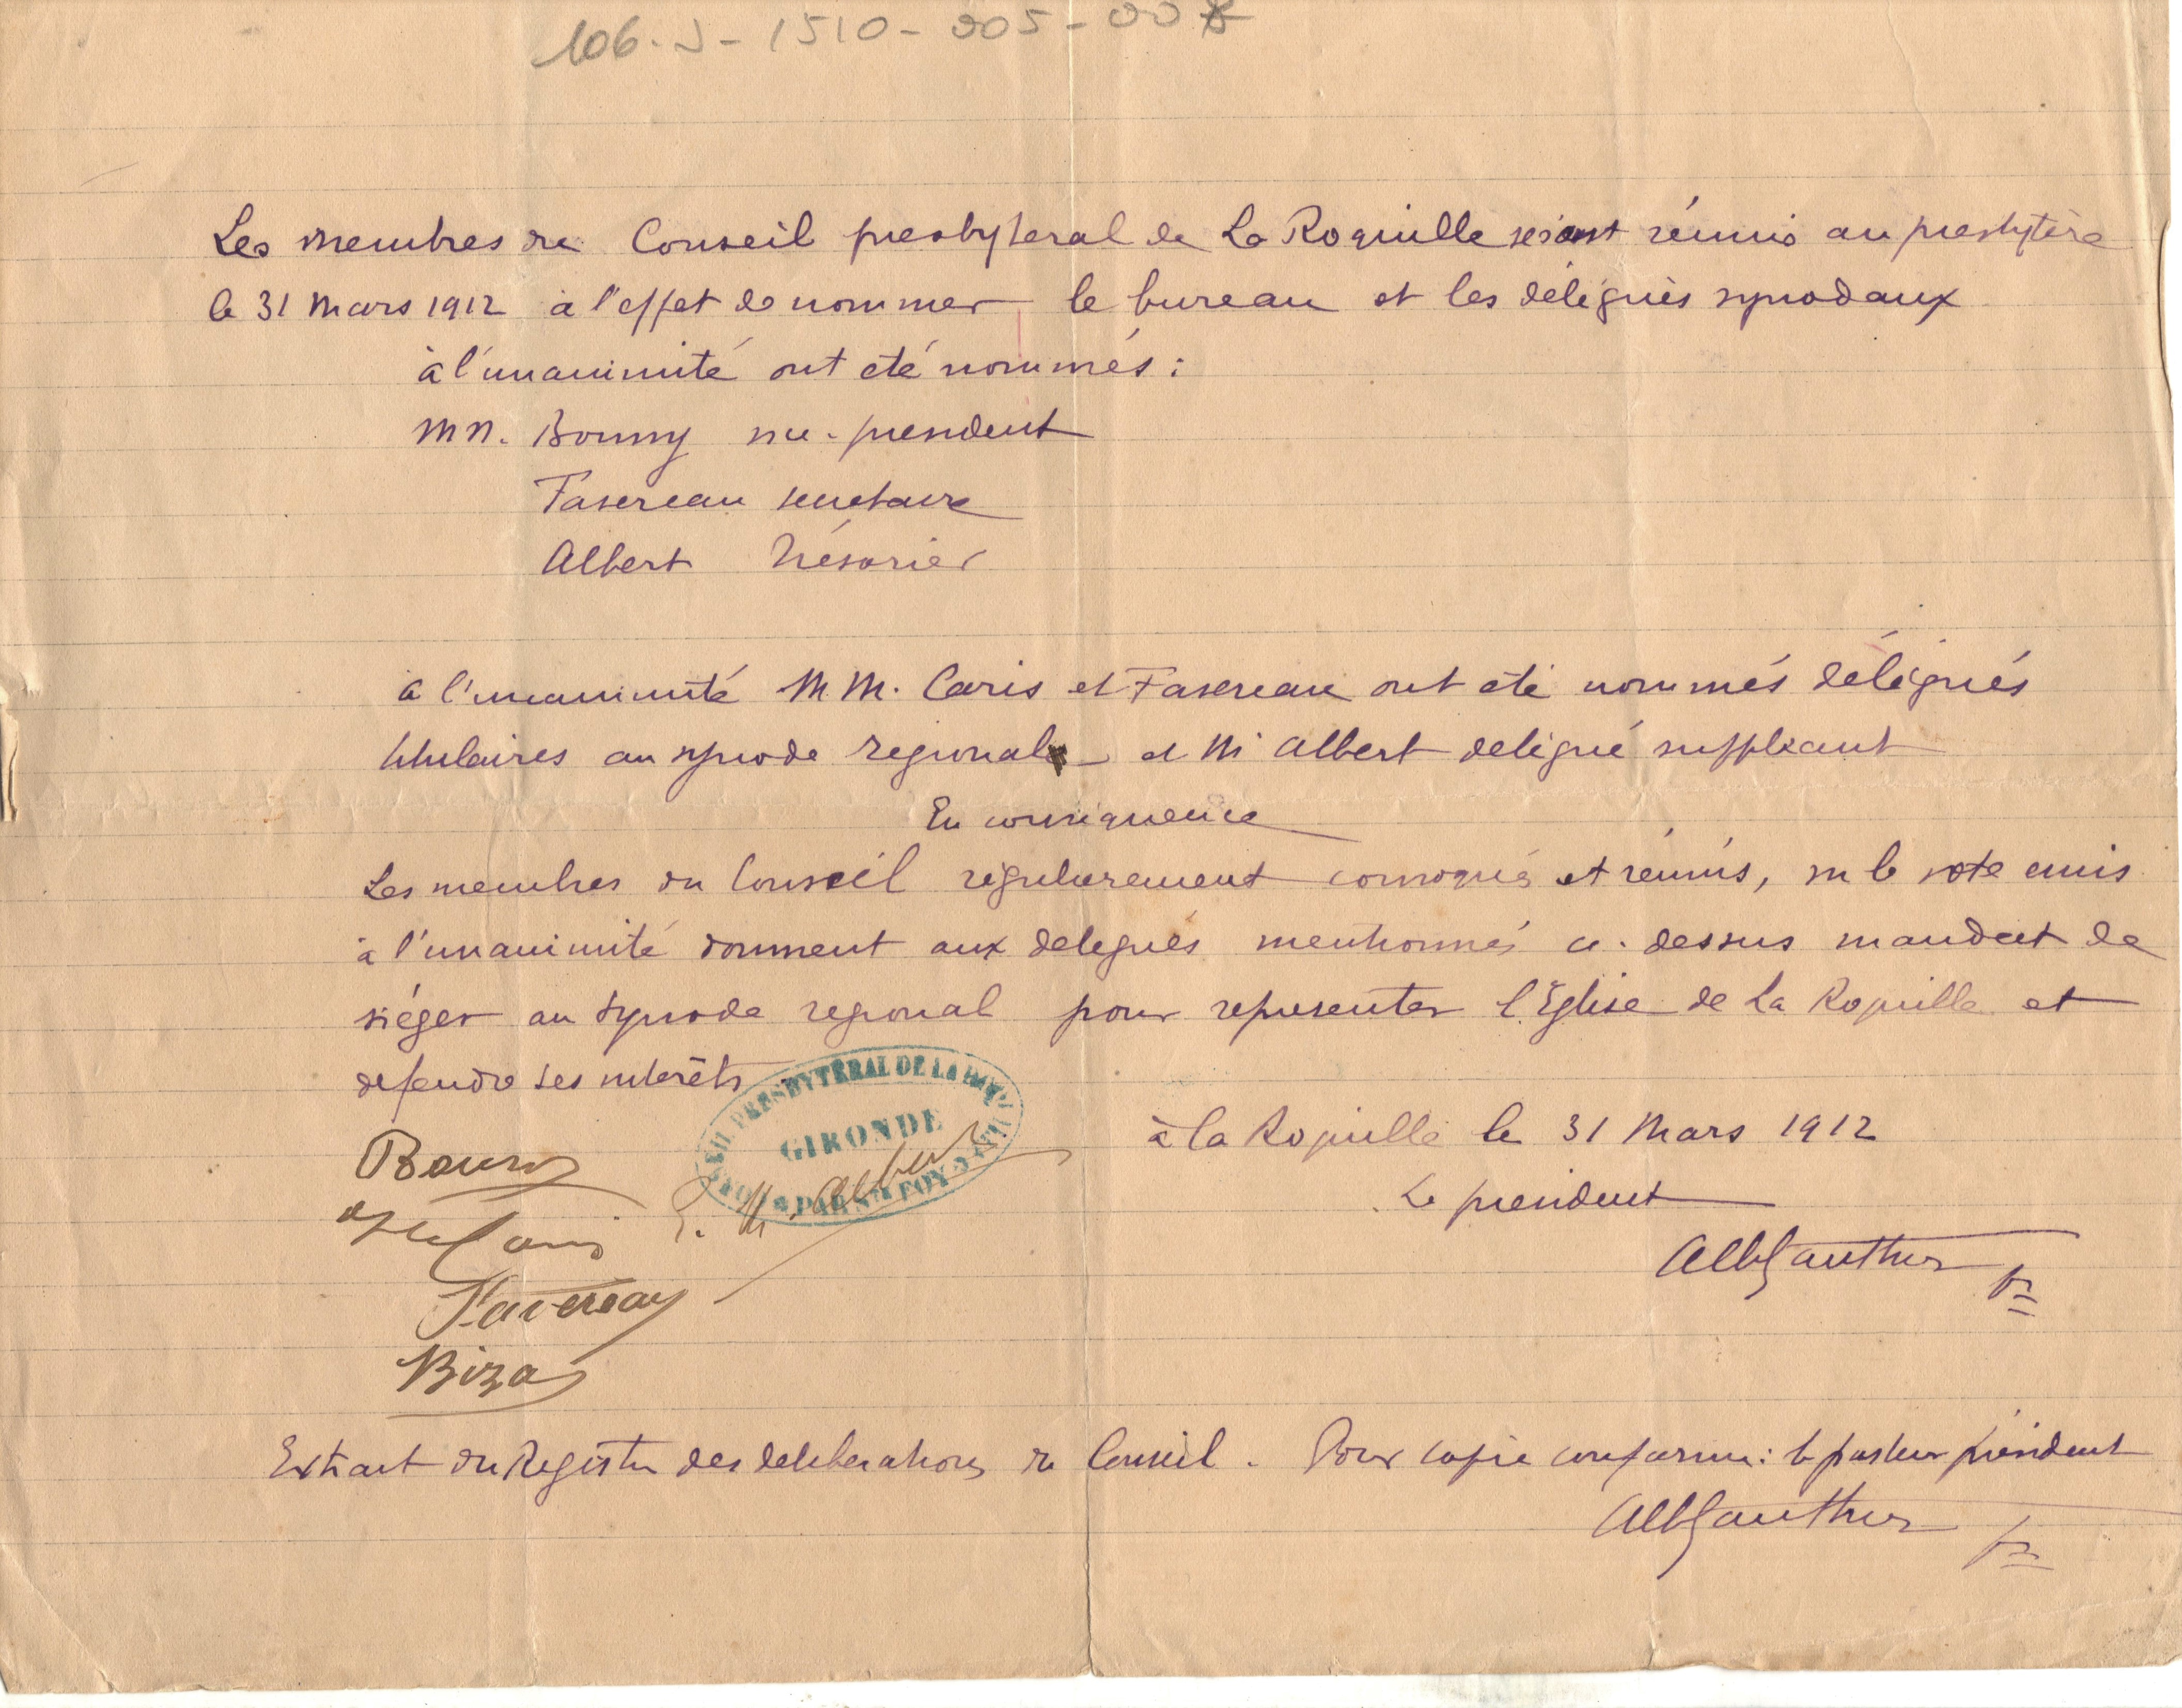 106-J-1510-005-00
Les membres du Conseil presbyteral de La Roquille se sont réunis au presbytère
le 31 Mars 1912 à l'effet de nommer le bureau et les délégués synodaux
à l'unanimité ont été nommés :
MM. Bonny vice-president
Favereau secretaire
Albert Trésorier
à l'unanimité MM. Caris et Favereau ont été nommés délégués
titulaires au synode regional et M. Albert délégué suppléant
En conséquence
Les membres du Conseil régulierement convoqués et réunis, vu le vote émis
à l'unanimité donnent aux delegués mentionnés ci-dessus mandat de
siéger au synode regional pour representer l'Eglise de La Roquille et
defendre ses intérêts
PRESBYTÉRAL DE LA
GIRONDE
PAR STE FOY
à La Roquille le 31 Mars 1912
Le president
E. M. Albert
Alb Gauthier
Favereau
Extrait du Registre des deliberations du Conseil. Pour copie conforme : le pasteur président
Alb Gauthier